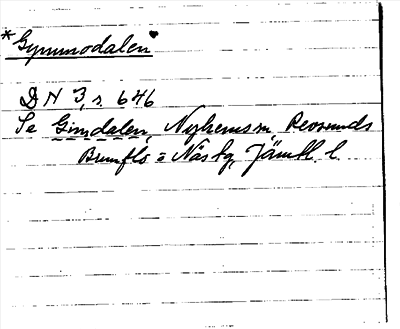 *Gymmodalen
DN 3, s. 646
Se Gimdalen, Nyhems sn, Revsunds
Brunflo = Näs tg, Jämtl. l.